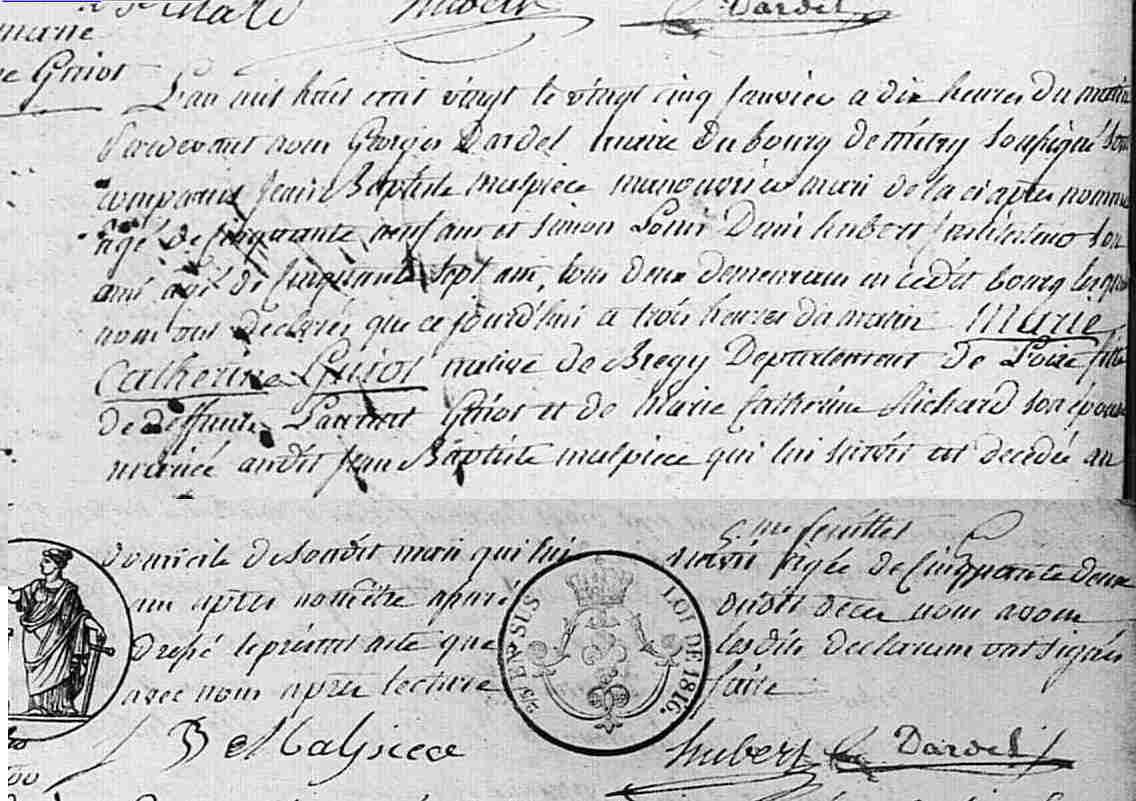 hubert Dardel
marie
Griot
L'an mil huit cent vingt le vingt cinq Janvier a dix heures du matin
Pardevant nous Georges Dardel maire du bourg de mitry soussigné sont
comparus Jean Baptiste malpiece manouvrier mari de la ci après nommée
agé de Cinquante neuf ans et simon Louis Denis hubert son
ami agé de Cinquante sept ans, tous deux demeurans en cedit bourg lesquels
nous ont déclarés que ce jourd'hui a trois heures du matin Marie
Catherine Griot native de Bregy Departement de Loise fille
de deffunts Laurent Griot et de Marie Catherine Richard son épouse
mariée audit Jean Baptiste malpiece qui lui survit est décédée au
5.me feuillet
domicile de sondit mari qui lui survit agée de Cinquante deux
ans après nous être assuré dudit décès nous avons
dressé le présent acte que lesdits déclarans ont signés
avec nous après lecture faite
EN SUS LOI DE 1816.
J B Malpiece hubert Dardel